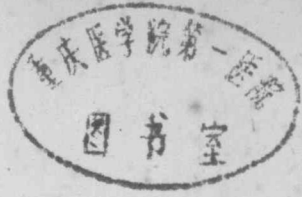 重庆医学院第一医院
图书室